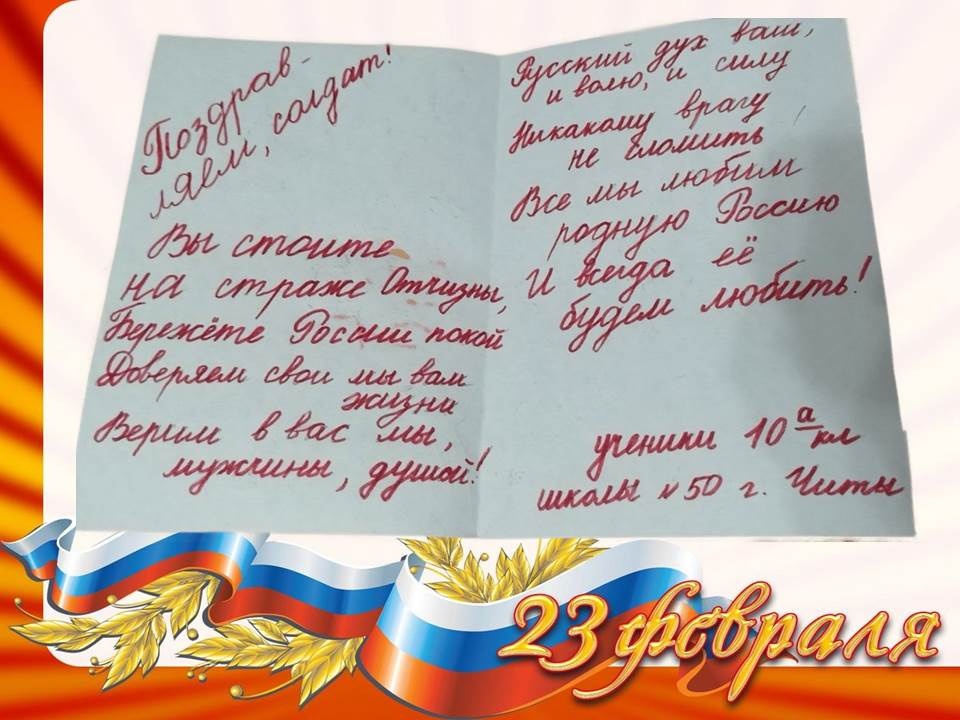 Поздрав-
ляем, солдат!
Вы стоите
на страже Отчизны,
Бережёте России покой
Доверяем свои мы вам
жизни
Верим в вас мы,
мужчины, душой!
Русский дух ваш,
и волю, и силу
Никакому врагу
не сломить
Все мы любим
родную Россию
И всегда её
будем любить!
ученики 10 а кл
школы № 50 г. Читы
23 февраля